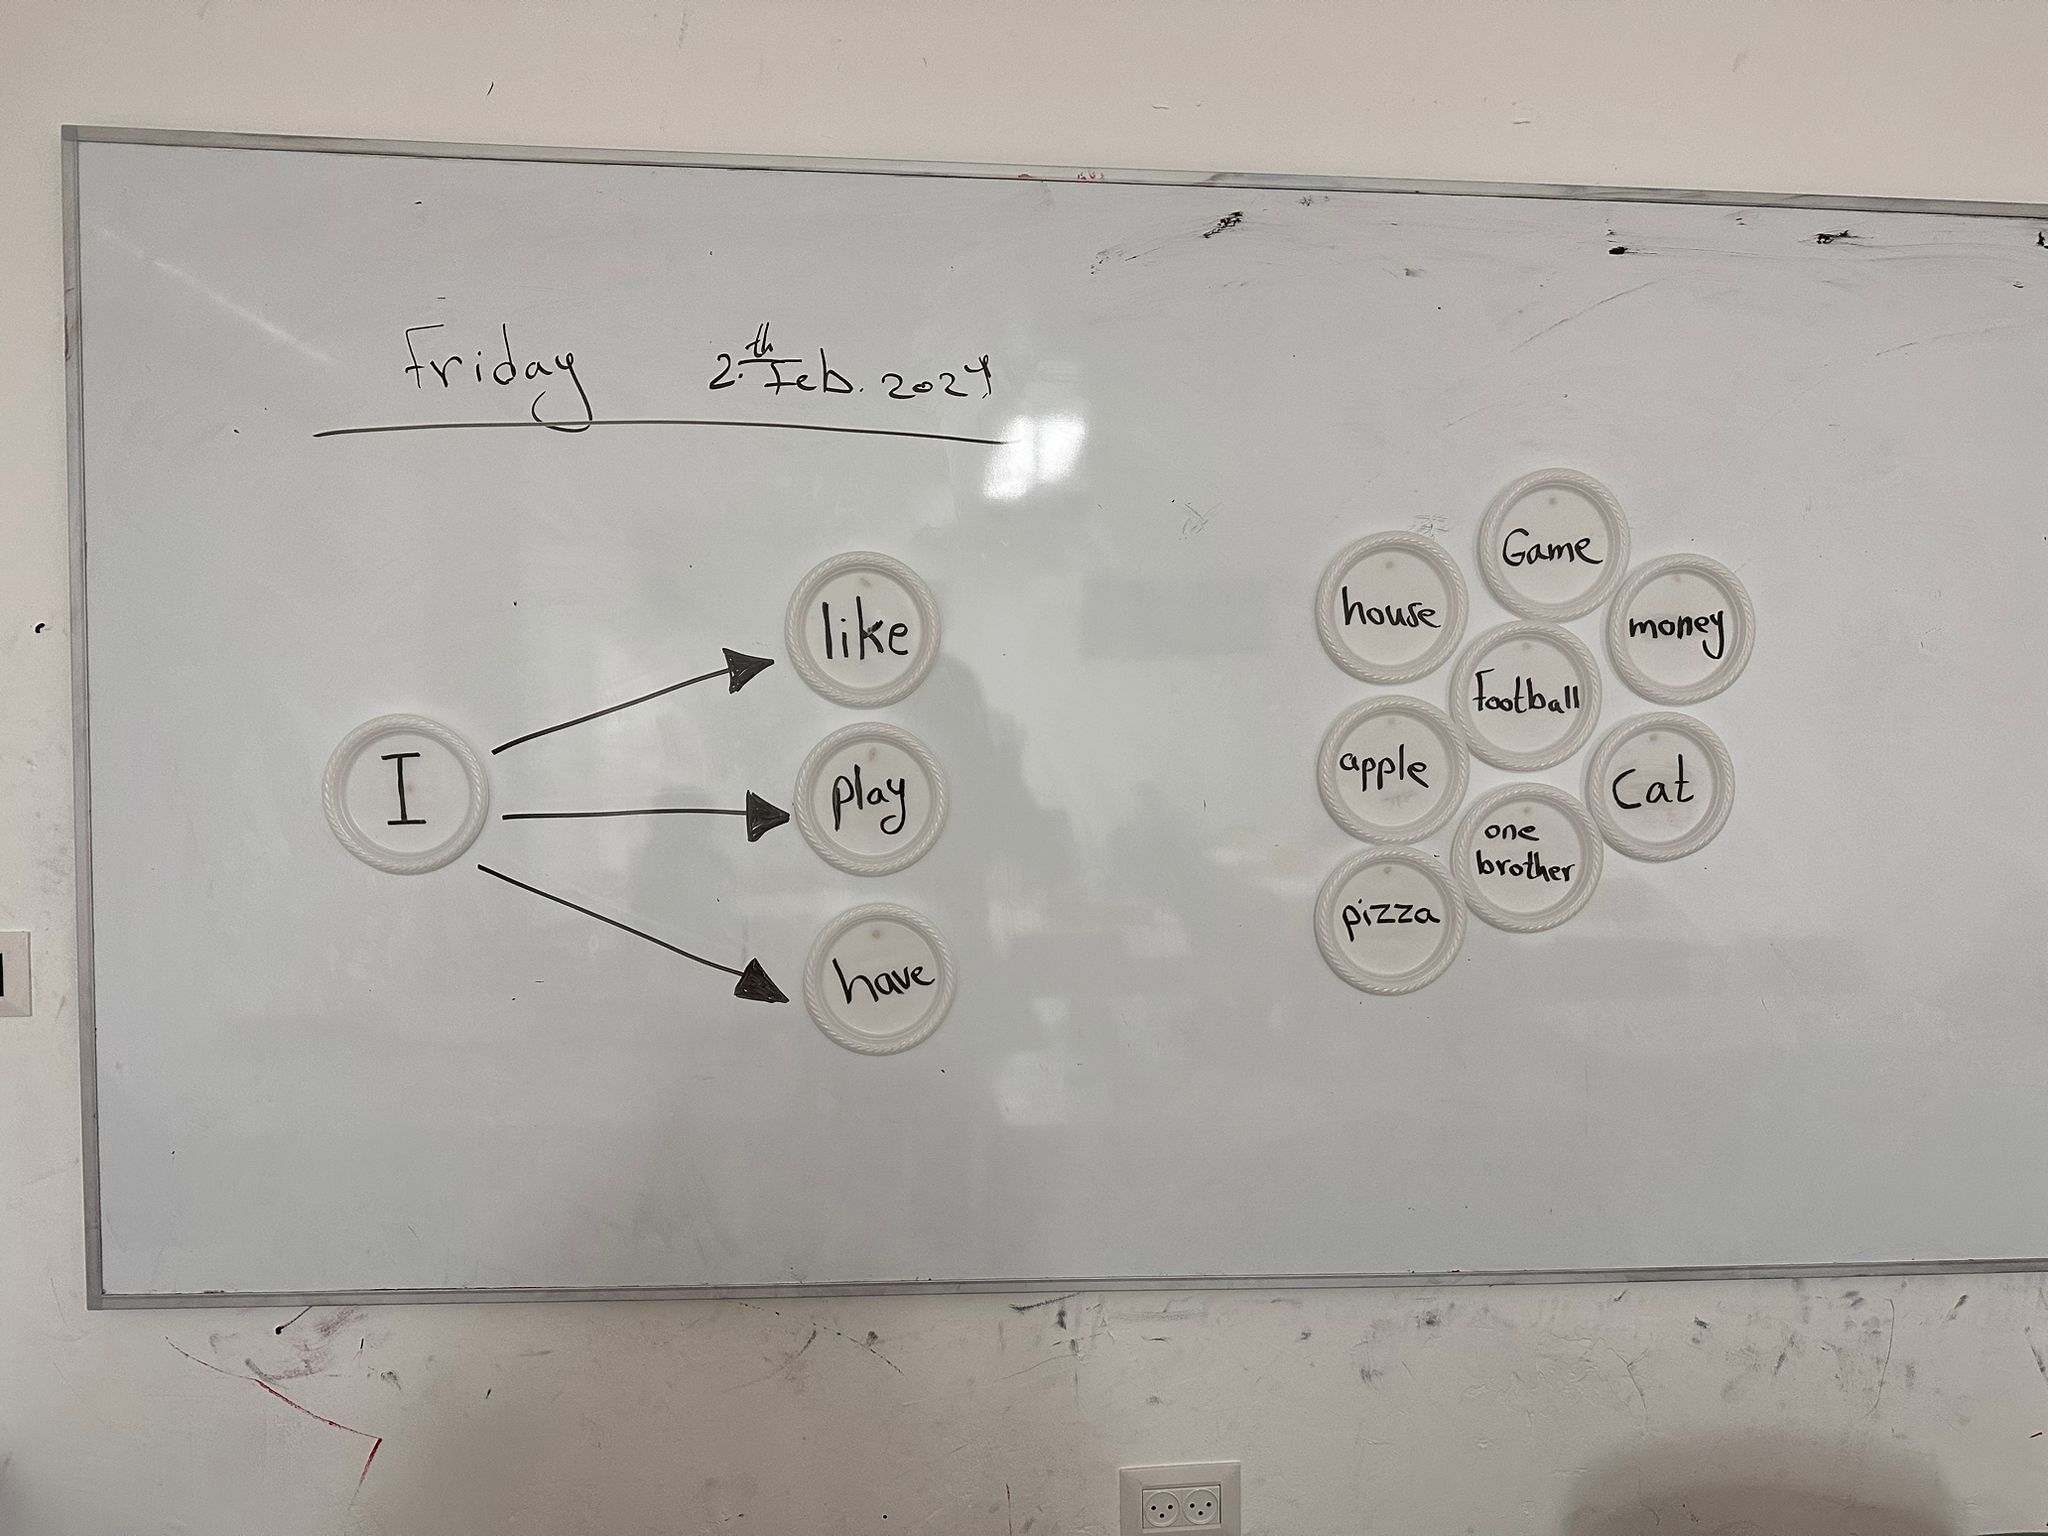 Friday 2.th Feb. 2024
I
like
play
have
Game
house
money
Football
apple
Cat
one
brother
pizza